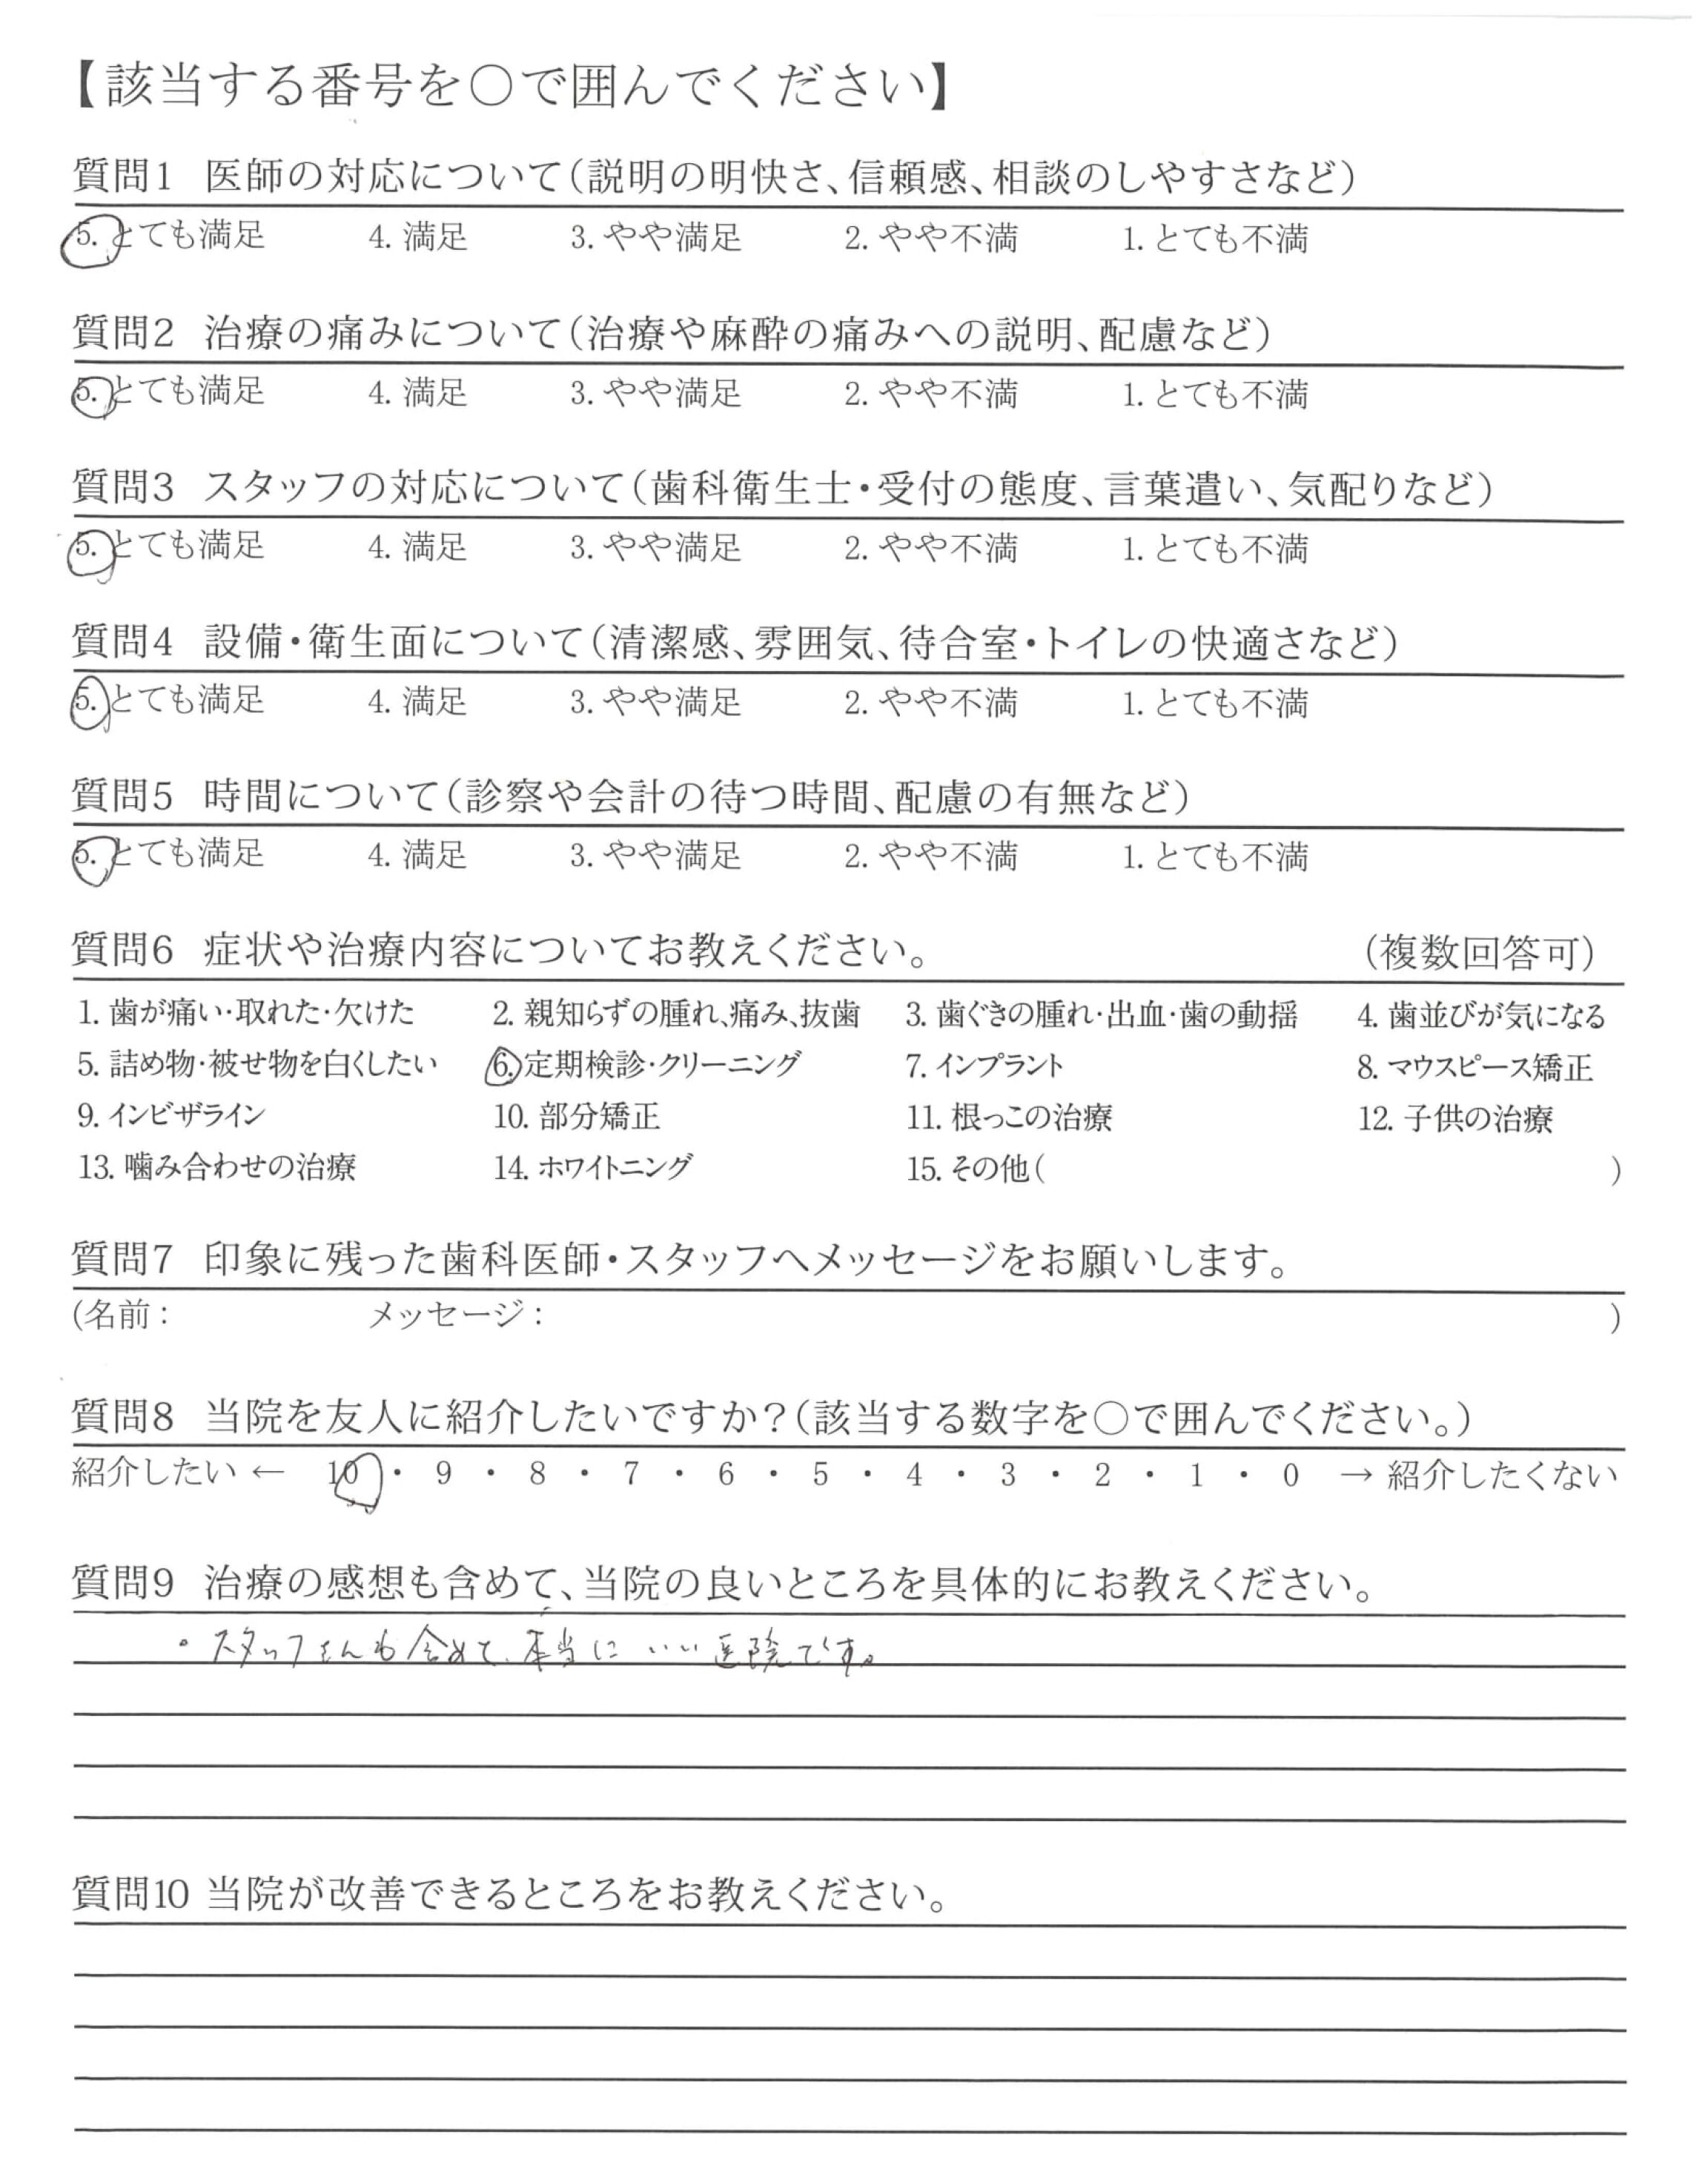 【該当する番号を○で囲んでください】
質問1 医師の対応について(説明の明快さ、信頼感、相談のしやすさなど)
5. とても満足 4. 満足 3. やや満足 2. やや不満 1. とても不満
質問2 治療の痛みについて(治療や麻酔の痛みへの説明、配慮など)
5. とても満足 4. 満足 3. やや満足 2. やや不満 1. とても不満
質問3 スタッフの対応について(歯科衛生士・受付の態度、言葉遣い、気配りなど)
5. とても満足 4. 満足 3. やや満足 2. やや不満 1. とても不満
質問4 設備・衛生面について(清潔感、雰囲気、待合室・トイレの快適さなど)
5. とても満足 4. 満足 3. やや満足 2. やや不満 1. とても不満
質問5 時間について(診察や会計の待つ時間、配慮の有無など)
5. とても満足 4. 満足 3. やや満足 2. やや不満 1. とても不満
質問6 症状や治療内容についてお教えください。 (複数回答可)
1. 歯が痛い・取れた・欠けた 2. 親知らずの腫れ、痛み、抜歯 3. 歯ぐきの腫れ・出血・歯の動揺 4. 歯並びが気になる
5. 詰め物・被せ物を白くしたい 6. 定期検診・クリーニング 7. インプラント 8. マウスピース矯正
9. インビザライン 10. 部分矯正 11. 根っこの治療 12. 子供の治療
13. 噛み合わせの治療 14. ホワイトニング 15. その他( )
質問7 印象に残った歯科医師・スタッフへメッセージをお願いします。
(名前: メッセージ: )
質問8 当院を友人に紹介したいですか?(該当する数字を○で囲んでください。)
紹介したい ← 10 ・ 9 ・ 8 ・ 7 ・ 6 ・ 5 ・ 4 ・ 3 ・ 2 ・ 1 ・ 0 → 紹介したくない
質問9 治療の感想も含めて、当院の良いところを具体的にお教えください。
・スタッフさんも含めて、本当に いい医院です。
質問10 当院が改善できるところをお教えください。